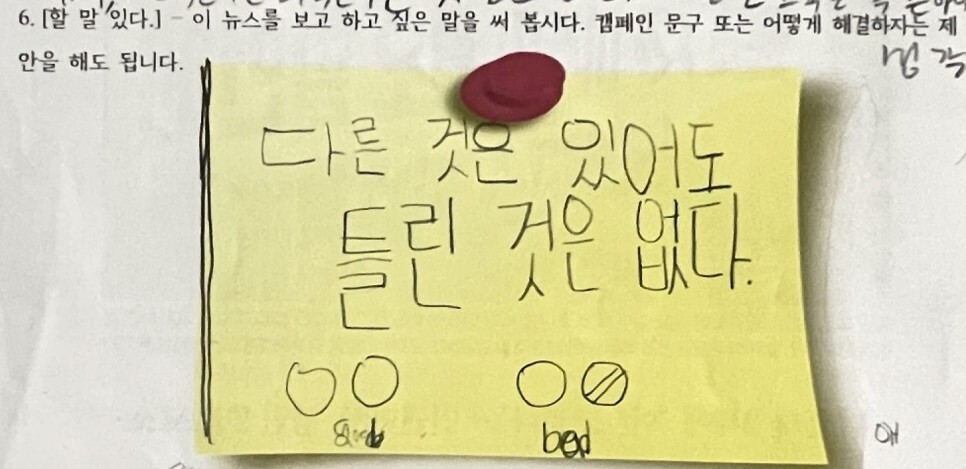 6. [할 말 있다.] - 이 뉴스를 보고 하고 싶은 말을 써 봅시다. 캠페인 문구 또는 어떻게 해결하자는 제
안을 해도 됩니다.
다른 것은 있어도
틀린 것은 없다.